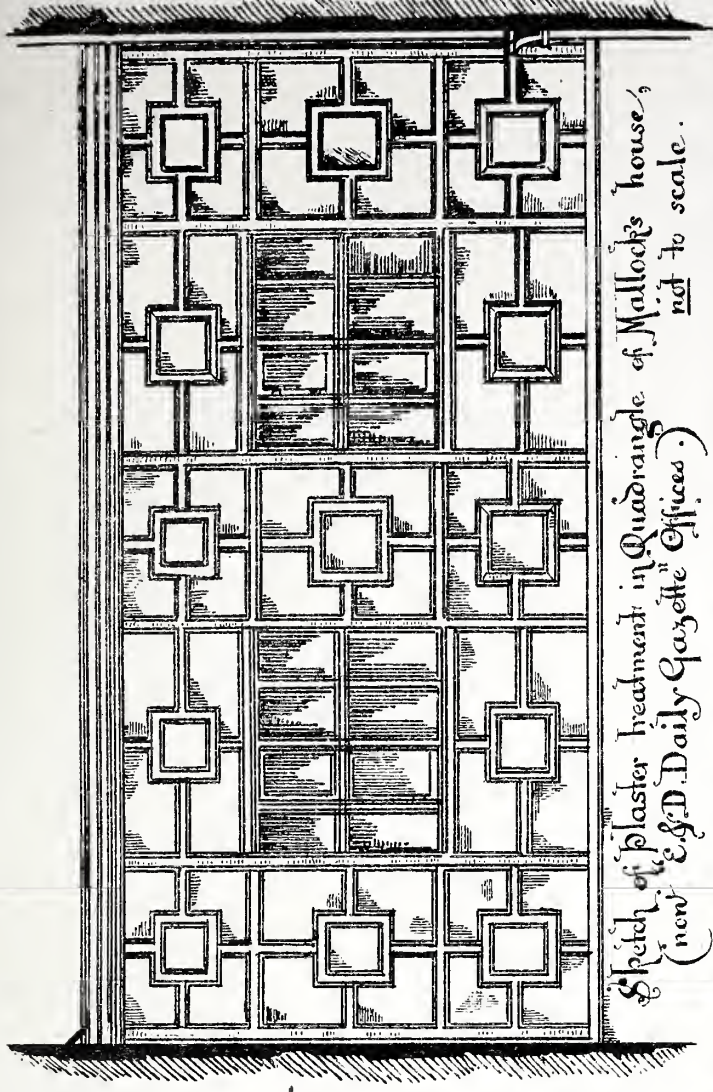 Sketch of plaster treatment in Quadrangle of Mallock's house,
(now "E & D. Daily Gazette" Offices.) not to scale.